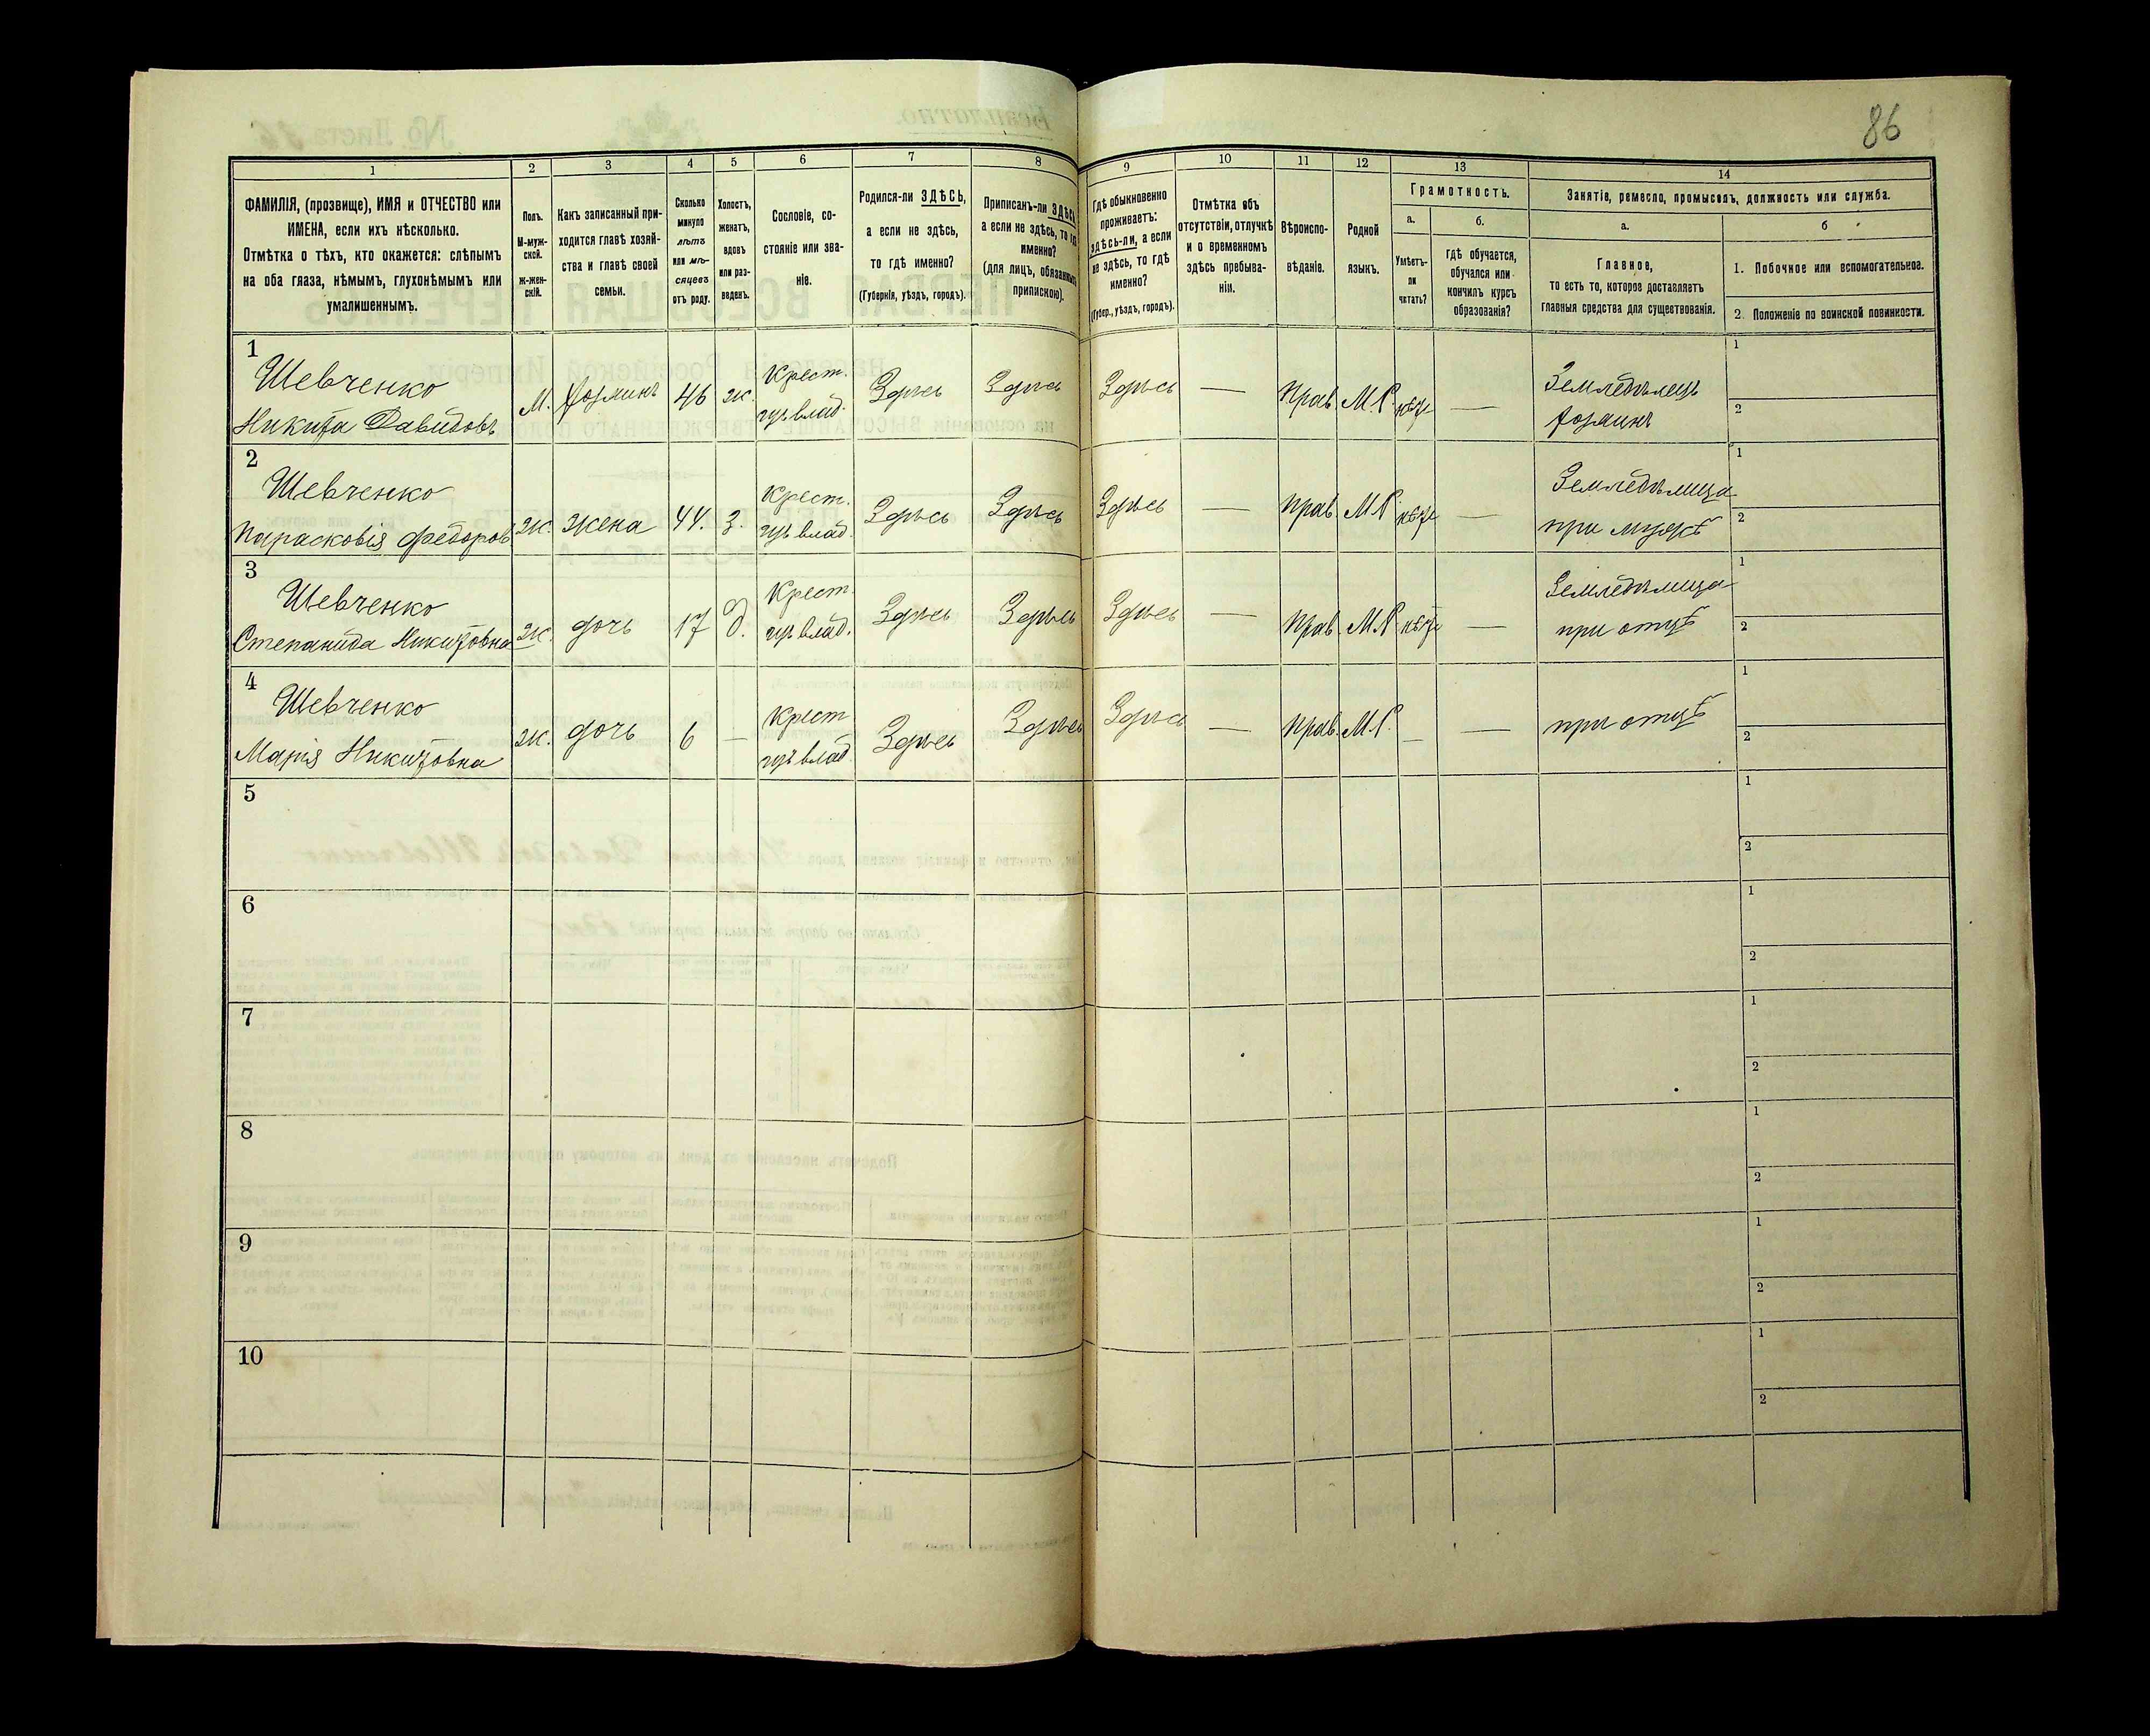 86
1 2 3 4 5 6 7 8 9 10 11 12 13 14
ФАМИЛІЯ, (прозвище), ИМЯ и ОТЧЕСТВО или
ИМЕНА, если ихъ нѣсколько.
Отмѣтка о тѣхъ, кто окажется: слѣпымъ
на оба глаза, нѣмымъ, глухонѣмымъ или
умалишеннымъ.
Полъ.
М-муж-
ской.
Ж-жен-
скій.
Какъ записанный при-
ходится главѣ хозяй-
ства и главѣ своей
семьи.
Сколько
минуло
лѣтъ
или мѣ-
сяцевъ
отъ роду.
Холостъ,
женатъ,
вдовъ
или раз-
веденъ.
Сословіе, со-
стояніе или зва-
ніе.
Родился-ли ЗДѢСЬ,
а если не здѣсь,
то гдѣ именно?
(Губернія, уѣздъ, городъ).
Приписанъ-ли ЗДѢСЬ,
а если не здѣсь, то гдѣ
именно?
(для лицъ, обязанныхъ
припискою).
Гдѣ обыкновенно
проживаетъ:
здѣсь-ли, а если
не здѣсь, то гдѣ
именно?
(Губер., уѣздъ, городъ).
Отмѣтка объ
отсутствіи, отлучкѣ
и о временномъ
здѣсь пребыва-
ніи.
Вѣроиспо-
вѣданіе.
Родной
языкъ.
Грамотность.
а.
б.
Умѣетъ-
ли
читать?
Гдѣ обучается,
обучался или
кончилъ курсъ
образованія?
Занятіе, ремесло, промыселъ, должность или служба.
а.
б
Главное,
то есть то, которое доставляетъ
главныя средства для существованія.
1. Побочное или вспомогательное.
2. Положеніе по воинской повинности.
1
Шевченко
Никита Давидовъ
М. хозяинъ 46 ж. Крест. Здѣсь Здѣсь Здѣсь — Прав. М.Р. нѣтъ — Земледѣлецъ
хозяинъ
1
2
2
Шевченко
Парасковія Федоров
Ж. жена 44. З. Крест. Здѣсь Здѣсь Здѣсь — Прав. М.Р. нѣтъ — Земледѣлица
при мужѣ
1
2
3
Шевченко
Степанида Никитовна
Ж. дочь 17 д. Крест. Здѣсь Здѣсь Здѣсь — Прав. М.Р. нѣтъ — Земледѣлица
при отцѣ
1
2
4
Шевченко
Марія Никитовна
Ж. дочь 6 — Крест Здѣсь Здѣсь Здѣсь — Прав. М.Р. — — при отцѣ
1
2
5
1
2
6
1
2
7
1
2
8
1
2
9
1
2
10
1
2